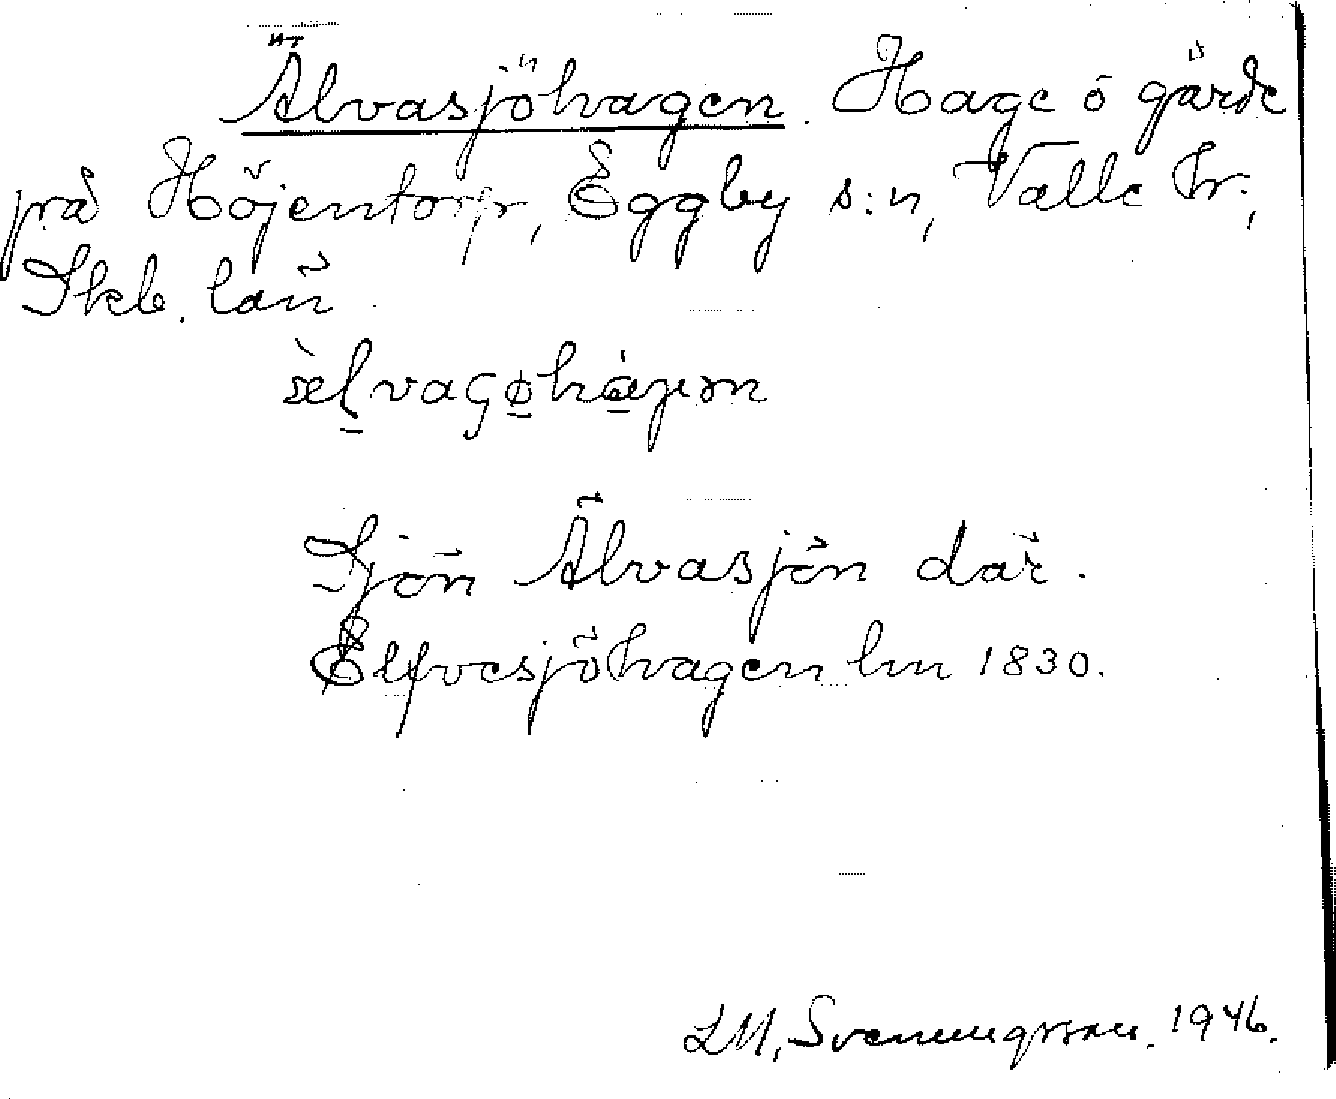 Älvasjöhagen. Hage o gärde
på Höjentorp, Eggby s:n, Valle hr.,
Skb. län.
Sjön Älvasjön där.
Elfvesjöhagen lm 1830.
LM, Svenungsson. 1946.